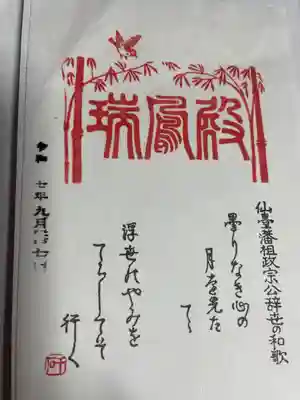 瑞鳳殿
仙臺藩祖政宗公辞世の和歌
曇りなき心の
月を先た
て〻
浮世のやみを
てらしてそ
行く
令和
七年九月